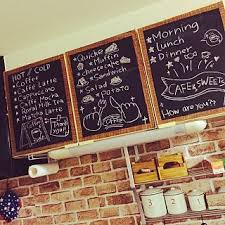 HOT or COLD
Coffee
Caffe Latte
Cappuccino
Caffe Mocha
Royal Milk Tea
Matcha Latte
Thank you
Quiche
Muffin
cheesecake
Sandwich
Salad
Potato
Morning
Lunch
Dinner
CAFE & SWEETS
How are you!?
1
2